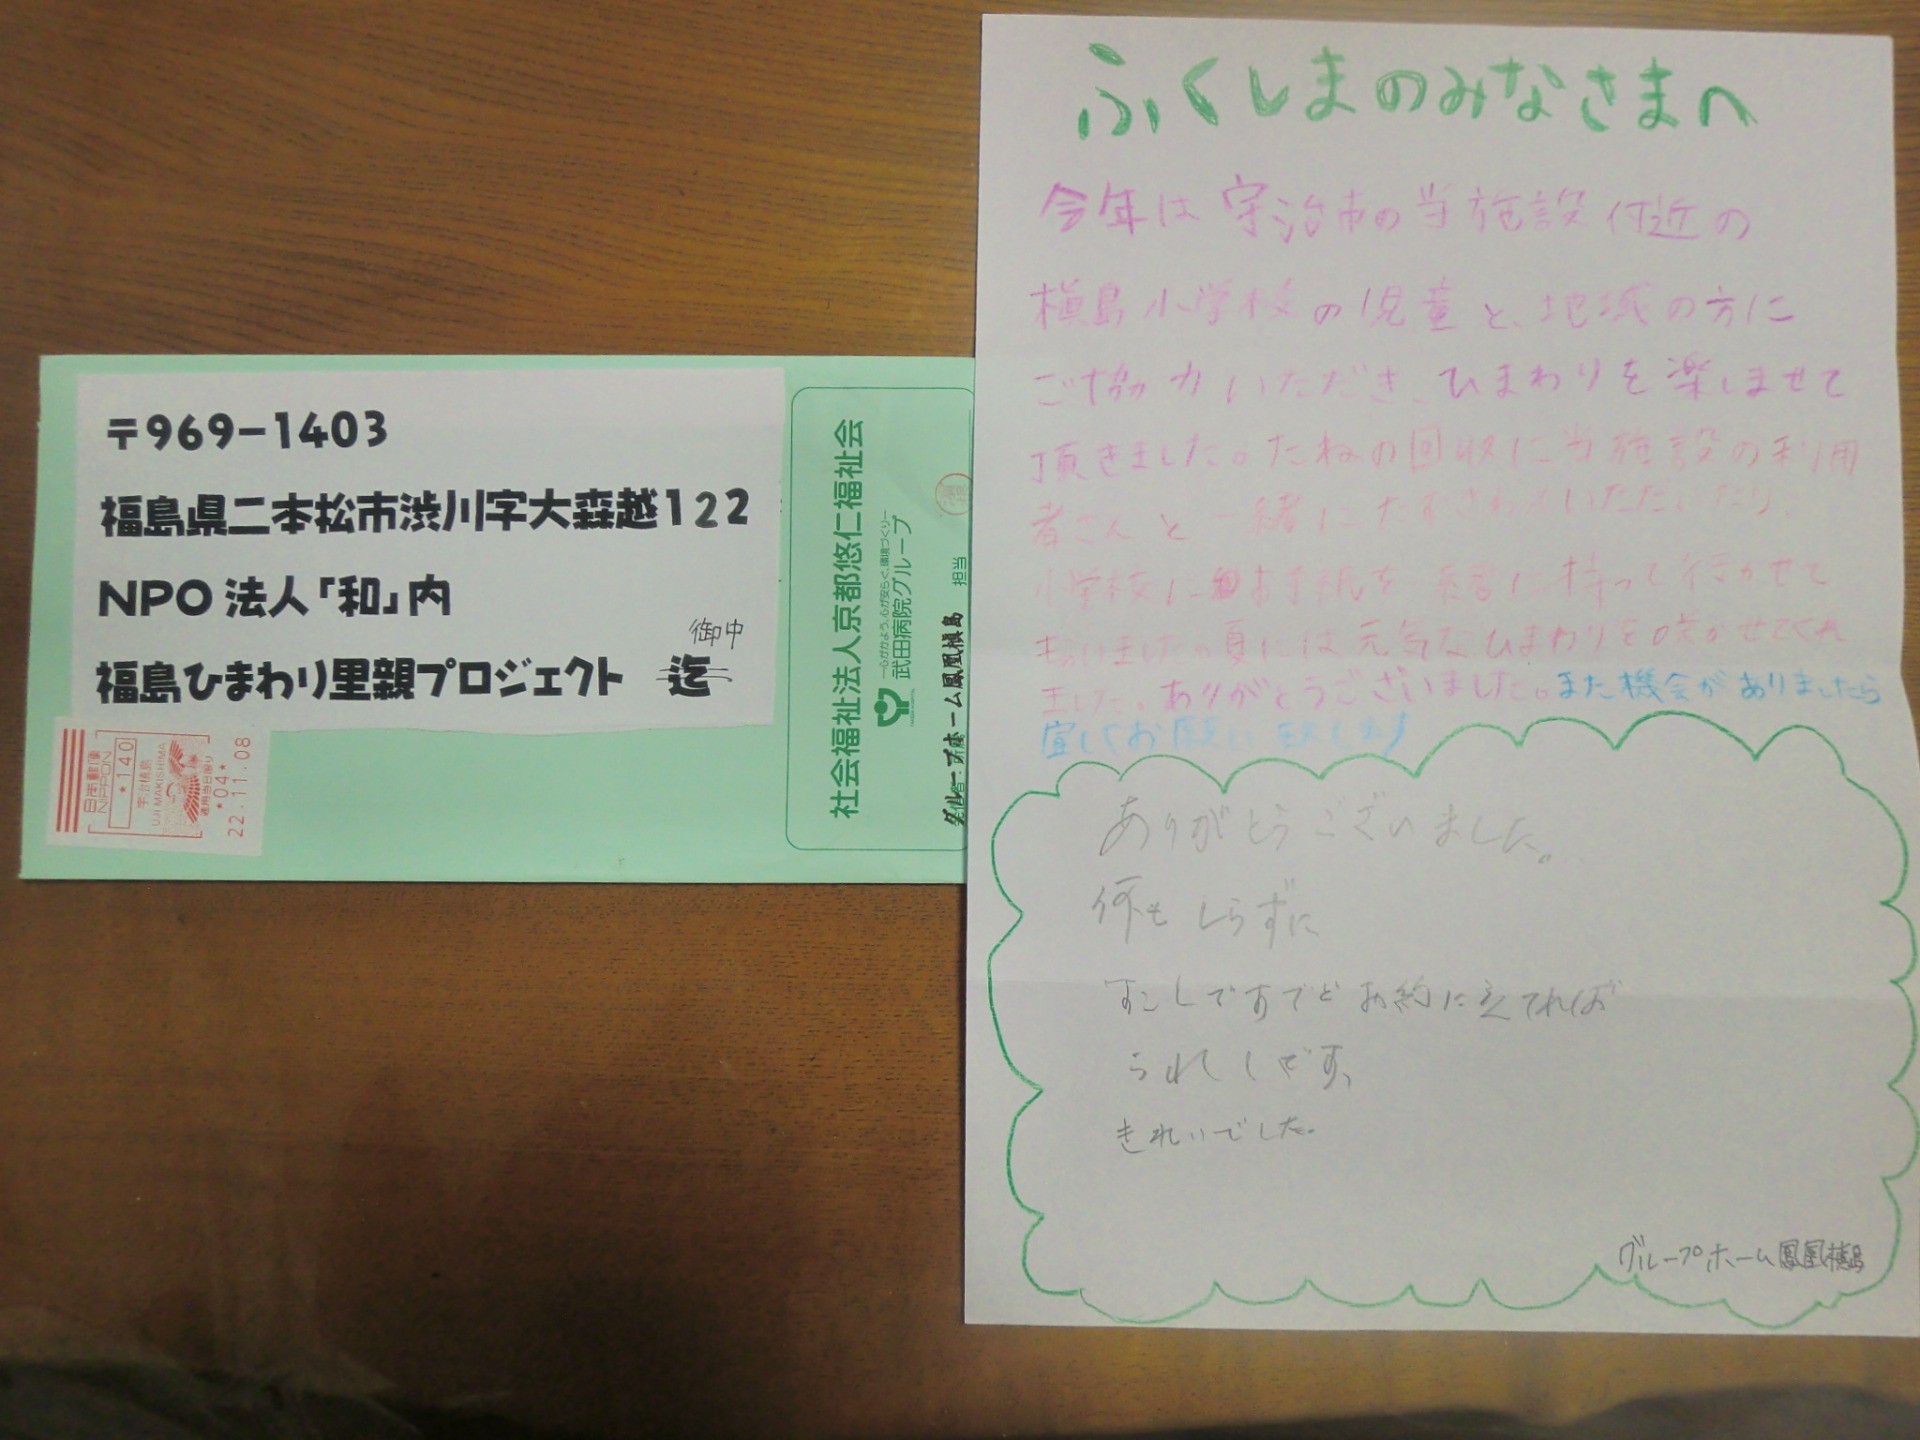 〒969-1403
福島県二本松市渋川字大森越122
NPO法人「和」内
福島ひまわり里親プロジェクト
御中
日本郵便
NIPPON
*140
宇治槙島
UJI MAKISHIMA
適用当日限り
*04*
22.11.08
社会福祉法人京都悠仁福祉会
武田病院グループ
担当
グループホーム鳳凰槇島
ふくしまのみなさまへ
今年は宇治市の当施設付近の
槇島小学校の児童と、地域の方に
ご協力いただき、ひまわりを楽しませて
頂きました。たねの回収に当施設の利用
者さんと一緒にたずさわっていただいたり、
小学校にお手紙を 持って行かせて
もらいました。夏には元気なひまわりを咲かせてくれ
ました。ありがとうございました。また機会がありましたら
宜しくお願い致します
ありがとうございました。
何もしらずに
すこしですでどお約に立てれば
うれしです、
きれいでした。
グループホーム鳳凰槇島